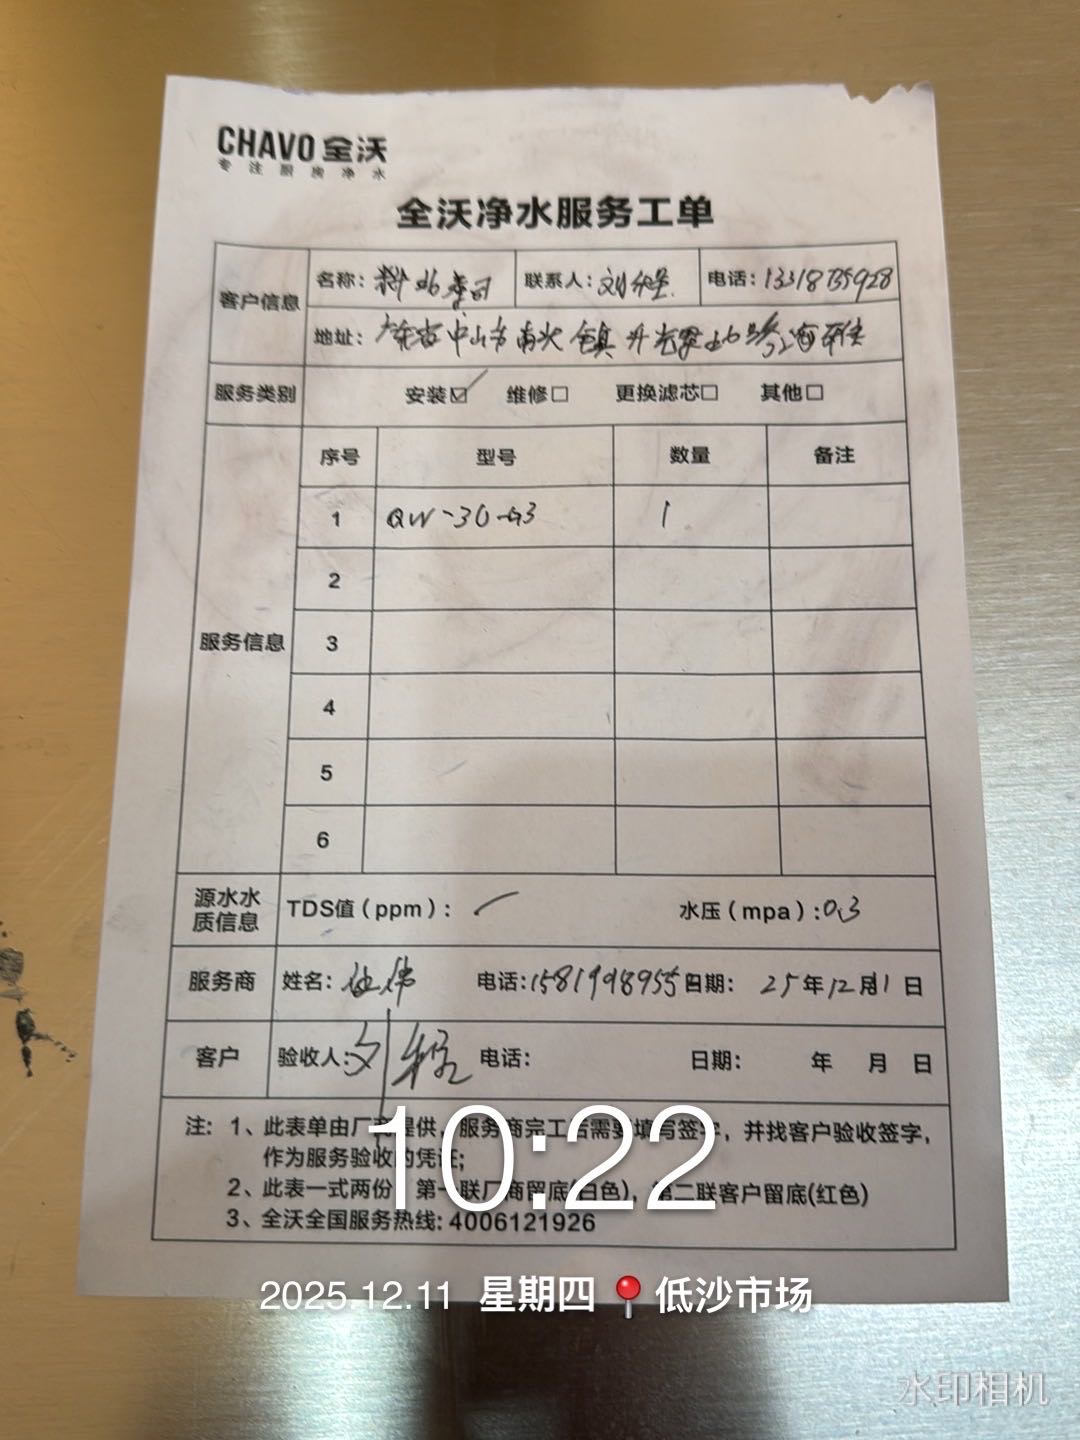 CHAVO 全沃
专注厨房净水
全沃净水服务工单
客户信息 名称： 联系人：刘 电话：13318135928
地址： 中山市南头镇
服务类别 安装☑ 维修□ 更换滤芯□ 其他□
服务信息 序号 型号 数量 备注
1 QW-30-G3 1
2
3
4
5
6
源水水质信息 TDS值（ppm）： 水压（mpa）:0.3
服务商 姓名： 伟 电话:1581998955 日期： 25年12月11日
客户 验收人:刘 电话： 日期： 年 月 日
注: 1、此表单由厂商提供，服务商完工后需要填写签字，并找客户验收签字，
作为服务验收的凭证;
2、此表一式两份，第一联厂商留底(白色)，第二联客户留底(红色)
3、全沃全国服务热线: 4006121926
10:22
2025.12.11 星期四 低沙市场
水印相机